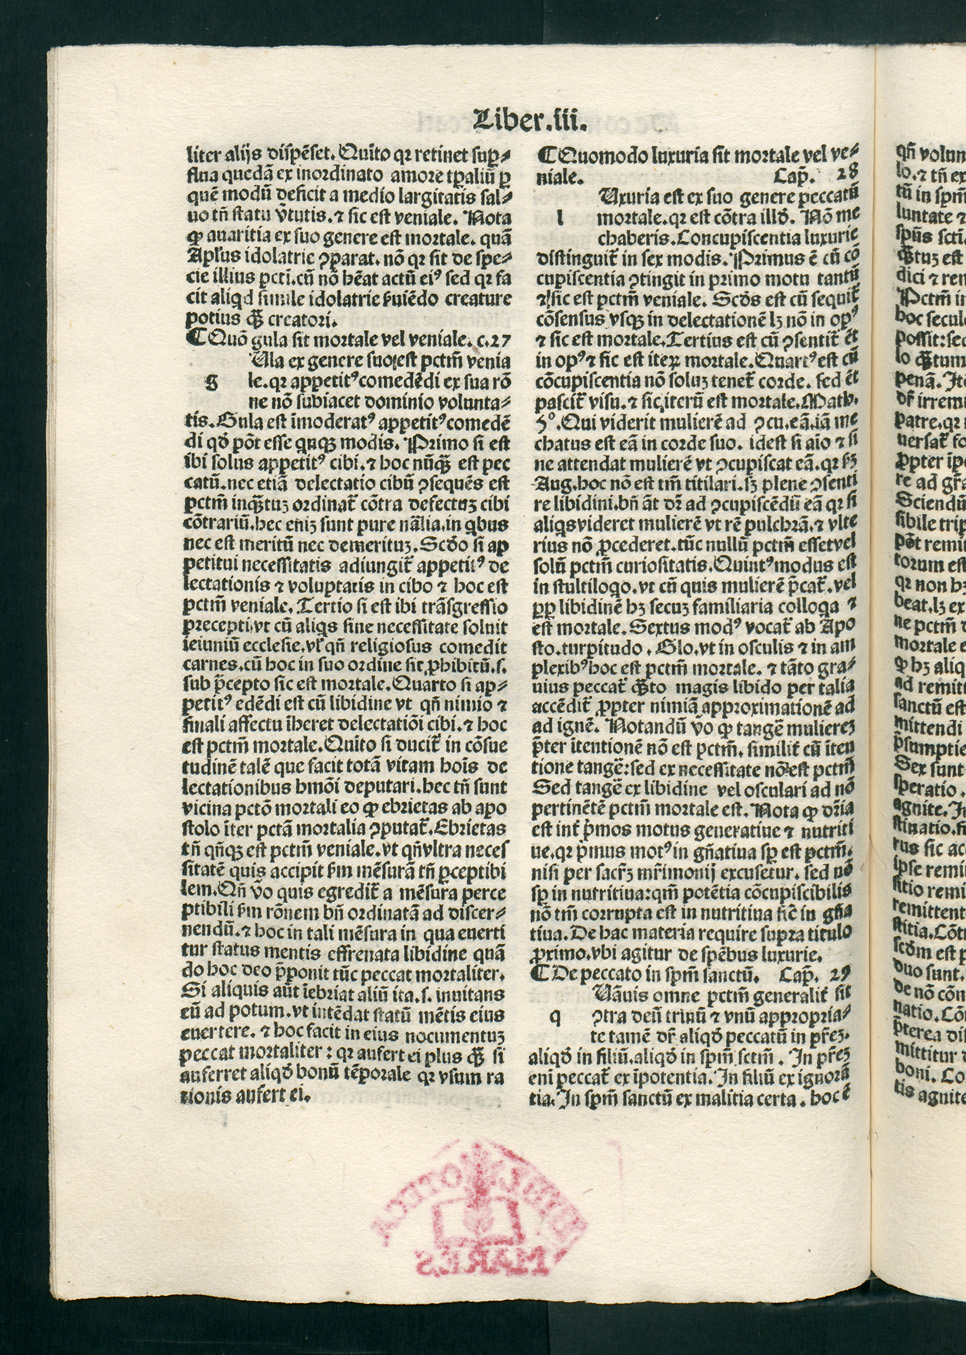 Liber.iii.
liter alijs dispēset. Quīto qr retinet supꝰ⸗
flua quedā ex inordinato amore tꝑaliū ꝑ
quē modū deficit a medio largitatis sal⸗
uo tñ statu v̄tutis. ⁊ sic est veniale. Nota
ꝙ auaritia ex suo genere est mortale. quā
Apl'us idolatrie ꝯparat. nō qr sit de spe⸗
cie illius pcti. cū nō hēat actū eiꝰ sed qr fa
cit aliqd simile idolatrie ẜuiēdo creature
potius q̄ȝ creatori.
¶ Quō gula sit mortale vel veniale. c. 27
Ula ex genere suo est pctm̄ venia
g le. qr appetitꝰ comedēdi ex sua rō
ne nō subiacet dominio volunta⸗
tis. Gula est īmoderatꝰ appetitꝰ comedē
di qd̄ pōt esse qnqȝ modis. Primo si est
ibi solus appetitꝰ cibi. ⁊ hoc nūq̄ȝ est pec
catū. nec etiā delectatio cibū ꝯsequēs est
pctm̄ inq̄ȝtuȝ ordinat̄ cōtra defectuȝ cibi
cōtrariū. hec eniȝ sunt pure nālia. in qbus
nec est meritū nec demerituȝ. Scd̄o si ap
petitui necessitatis adiungit̄ appetitꝰ de
lectationis ⁊ voluptatis in cibo ⁊ hoc est
pctm̄ veniale. Tertio si est ibi trāsgressio
precepti. vt cū aliqs sine necessitate soluit
ieiuniū ecclesie. vl' qñ religiosus comedit
carnes. cū hoc in suo ordine sit ꝓhibitū. s.
sub p̄cepto sic est mortale. Quarto si ap⸗
petitꝰ edēdi est cū libidine vt qñ nimio ⁊
finali affectu īheret delectatiōi cibi. ⁊ hoc
est pctm̄ mortale. Quīto si ducit̄ in cōsue
tudinē talē que facit totā vitam hoīs de
lectationibus hmōi deputari. hec tñ sunt
vicina pctō mortali eo ꝙ ebrietas ab apo
stolo īter pctā mortalia ꝯputat̄. Ebrietas
tñ qñqȝ est pctm̄ veniale. vt qñ vltra neces
sitatē quis accipit ẜm mēsurā tñ ꝑceptibi
lem. Qñ v̄o quis egredit̄ a mēsura perce
ptibili ẜm rōnem bñ ordinatā ad discer⸗
nendū. ⁊ hoc in tali mēsura in qua euerti
tur status mentis effrenata libidine quā
do hoc deo p̄ponit tūc peccat mortaliter.
Si aliquis aūt īebriat aliū ita. s. inuitans
eū ad potum. vt intēdat statū mētis eius
euertere. ⁊ hoc facit in eius nocumentuȝ
peccat mortaliter: qr aufert ei plus q̄ȝ si
auferret aliqd̄ bonū tēporale qr vsum ra
tionis aufert ei.
¶ Quomodo luxuria sit mortale vel ve⸗
niale. Cap̄. 28
Uxuria est ex suo genere peccatū
l mortale. qr est cōtra illd̄. Nō me
chaberis. Concupiscentia luxurie
distinguit̄ in sex modis. Primus ē cū cō
cupiscentia ꝯtingit in primo motu tantū
⁊ sic est pctm̄ veniale. Scd̄s est cū sequit̄
cōsensus vsqȝ in delectationē lȝ nō in opꝰ
⁊ sic est mortale. Tertius est cū ꝯsentit̄ et
in opꝰ ⁊ sic est iteꝝ mortale. Quartꝰ est cū
cōcupiscentia nō soluȝ tenet̄ corde. sed ēt
pascit̄ visu. ⁊ sic iterū est mortale. Math.
5°. Qui viderit mulierē ad ꝯcu. eā. iā me
chatus est eā in corde suo. idest si aīo ⁊ si
ne attendat mulierē vt ꝯcupiscat eā. qr ẜȝ
Aug. hoc nō est tm̄ titilari. sȝ plene ꝯsenti
re libidini. bñ āt dr̄ ad ꝯcupiscēdū eā qr si
aliqs videret mulierē vt rē pulchrā. ⁊ vlte
rius nō ꝓcederet. tūc nullū pctm̄ esset vel
solū pctm̄ curiositatis. Quintꝰ modus est
in stultiloqo. vt cū quis mulierē p̄cat̄. vel
ꝓp libidinē hȝ secuȝ familiaria colloqa ⁊
est mortale. Sextus modꝰ vocat̄ ab Apo
sto. turpitudo. Glo. vt in osculis ⁊ in am
plexibꝰ hoc est pctm̄ mortale. ⁊ tāto gra⸗
uius peccat̄ q̄ȝto magis libido per talia
accēdit̄ ꝓpter nimiā approximationē ad
ad ignē. Notandū v̄o ꝙ tangē muliereȝ
p̄ter itentionē nō est pctm̄. similit̄ cū īten
tione tangē: sed ex necessitate nō est pctm̄
Sed tangē ex libidine vel osculari ad nō
pertinētē pctm̄ mortale est. Nota ꝙ dr̄ia
est int̄ p̄mos motus generatiue ⁊ nutriti
ue. qr p̄mus motꝰ in gñatiua sꝑ est pctm̄.
nisi per sacr̄ȝ mr̄imonij excusetur. sed nō
sꝑ in nutritiua: qm̄ potētia cōcupiscibilis
nō tm̄ corrupta est in nutritiua sic̄ in gña
tiua. De hac materia require supra titulo
ꝓximo. vbi agitur de spēbus luxurie.
¶ De peccato in spm̄ sanctū. Cap̄. 29
Uāuis omne pctm̄ generalit̄ sit
q ꝯtra deū trinū ⁊ vnū appropria⸗
te tamē dr̄ aliqd̄ peccatū in pr̄eȝ.
aliqd̄ in filiū. aliqd̄ in spm̄ sctm̄. In pr̄eȝ
eni peccat̄ ex īpotentia. In filiū ex ignorā
tia. In spm̄ sanctū ex malitia certa. hoc ē
BIBLIOTECA
MARES